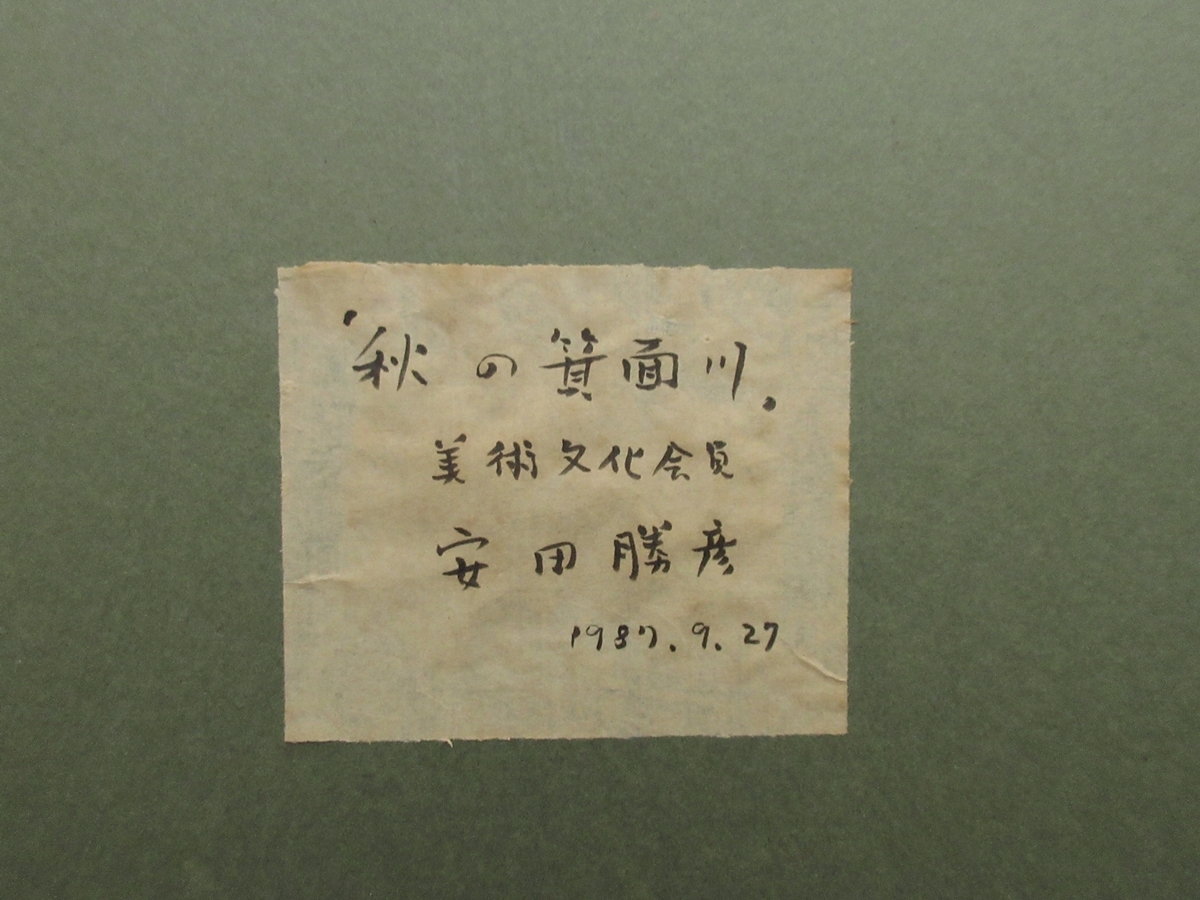 '秋の箕面川.
美術文化会員
安田勝彦
1987.9.27